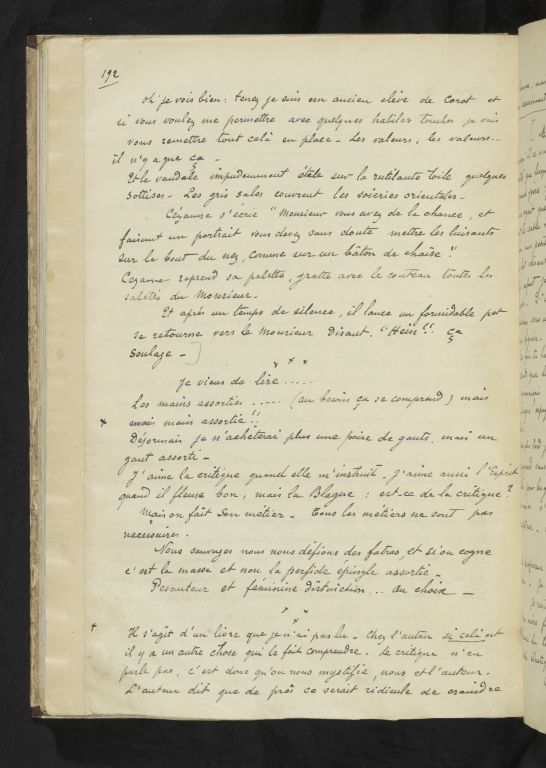 192
Oh! je vois bien: tenez je suis un ancien élève de Corot et
si vous voulez me permettre avec quelques habiles touches je vais
vous remettre tout celà en place _ Les valeurs, les valeurs...
il n'y a que ça _
Et le vandale impudemment étale sur la rutilante toile quelques
sottises _ Les gris sales couvrent les soieries orientales _
Cézanne s'écrie "Monsieur vous avez de la chance, et
faisant un portrait vous devez sans doute mettre les luisants
sur le bout du nez, comme sur un bâton de chaise".
Cezanne reprend sa palette, gratte avec le couteau toutes les
saletés du Monsieur _
Et après un temps de silence, il lance un formidable pet
se retourne vers le Monsieur disant. "Hein!! ça
soulage _
Je viens de lire .....
Les mains assorties ..... (au besoin ça se comprend) mais
mais main assortie!!
Désormais je n'acheterai plus une paire de gants, mais un
gant assorti _
J'aime la critique quand elle m'instruit _ J'aime aussi l'Esprit
quand il fleure bon, mais la Blague: est-ce de la critique?
Mais on fait son métier _ Tous les métiers ne sont pas
nécessaires.
Nous sauvages nous nous défions des fatras, et si on cogne
c'est la masse et non la perfide épingle assortie _
Pesanteur et féminine distinction ... au choix _
Il s'agit d'un livre que je n'ai pas lu _ Chez l'auteur si celà est
il y a un autre chose qui le fait comprendre. Le critique n'en
parle pas, c'est donc qu'on nous mystifie, nous et l'auteur.
L'auteur dit que de près ce serait ridicule de craindre